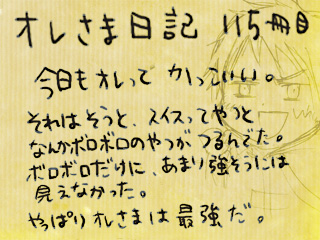 オレさま日記 115冊目
今日もオレって かっこいい。
それはそうと、スイスってやつと
なんかボロボロのやつが つるんでた。
ボロボロだけに、あまり強そうには
見えなかった。
やっぱりオレさまは 最強だ。